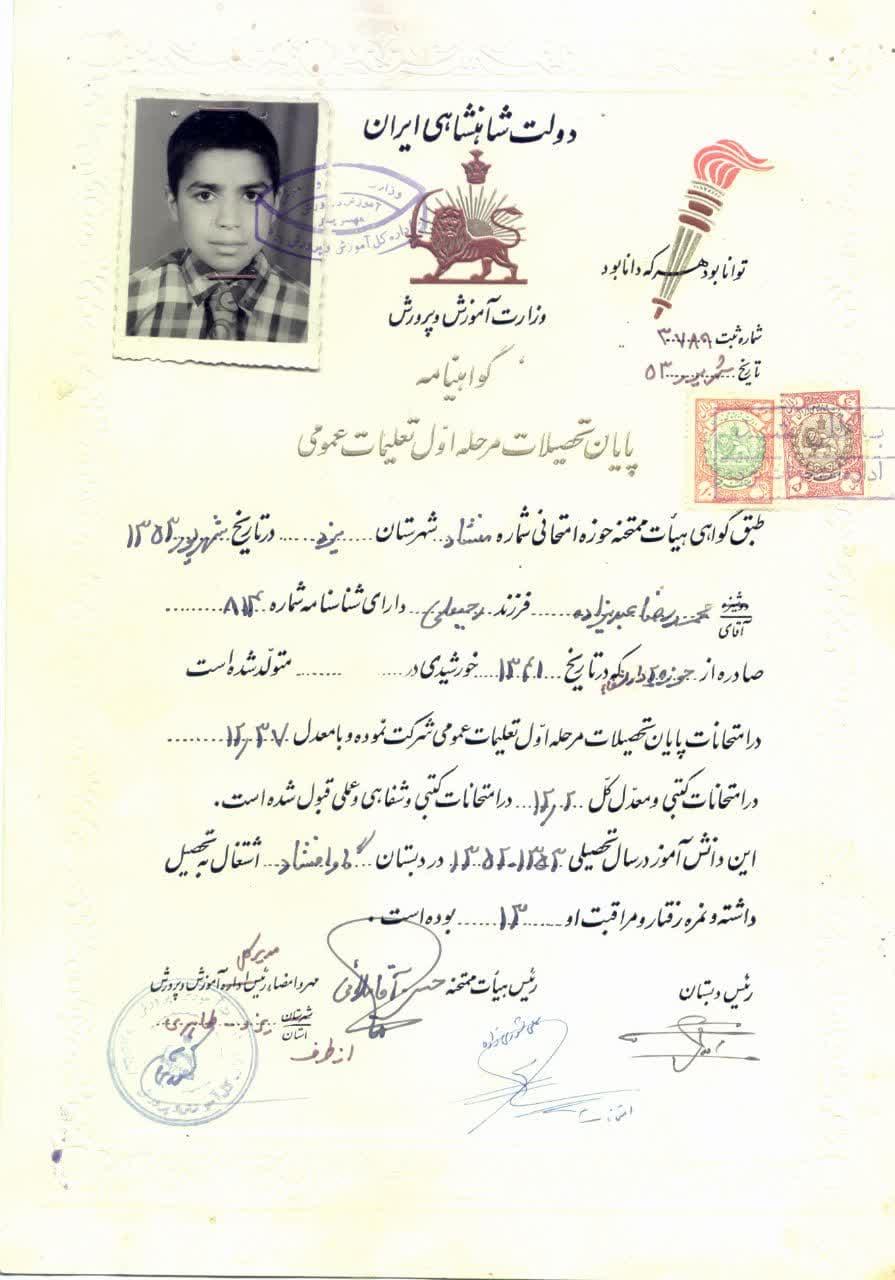 دولت شاهنشاهی ایران
توانا بود هر که دانا بود
وزارت آموزش و پرورش
شماره ثبت ۳۰۷۸۹
تاریخ شهریور ۵۳
گواهینامه
پایان تحصیلات مرحله اوّل تعلیمات عمومی
طبق گواهی هیأت ممتحنه حوزه امتحانی شماره منشاد شهرستان یزد در تاریخ شهریور ۱۳۵۳
دوشیزه
آقای محمدرضا فرزند رجبعلی دارای شناسنامه شماره ۸۱۴
صادره از حوزه که در تاریخ ۱۳۴۱ خورشیدی در متولّد شده است
در امتحانات پایان تحصیلات مرحله اوّل تعلیمات عمومی شرکت نموده و با معدل ۱۲٫۳۷
در امتحانات کتبی و معدّل کلّ ۱۲٫۲ در امتحانات کتبی و شفاهی و عملی قبول شده است.
این دانش آموز در سال تحصیلی ۱۳۵۳-۱۳۵۲ در دبستان منشاد اشتغال به تحصیل
داشته و نمره رفتار و مراقبت او ۱۳ بوده است.
رئیس دبستان
رئیس هیأت ممتحنه
مدیر کل
مهر و امضاء رئیس اداره آموزش و پرورش
شهرستان
استان یزد طاهری
از طرف
وزارت
آموزش و پرورش
اداره کل آموزش و پرورش